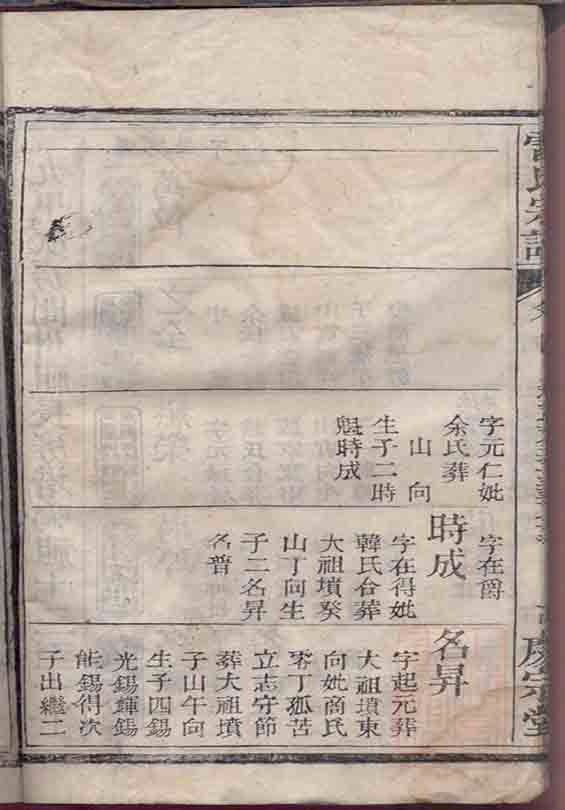 字元仁妣
余氏葬
山向
生子二時
魁時成
字在爵
時成
字在得妣
韓氏合葬
大祖墳癸
山丁向生
子二名昇
名普
名昇
字起元葬
大祖墳東
向妣商氏
零丁孤苦
立志守節
葬大祖墳
子山午向
生子四錫
光錫輝錫
能錫得次
子出繼二